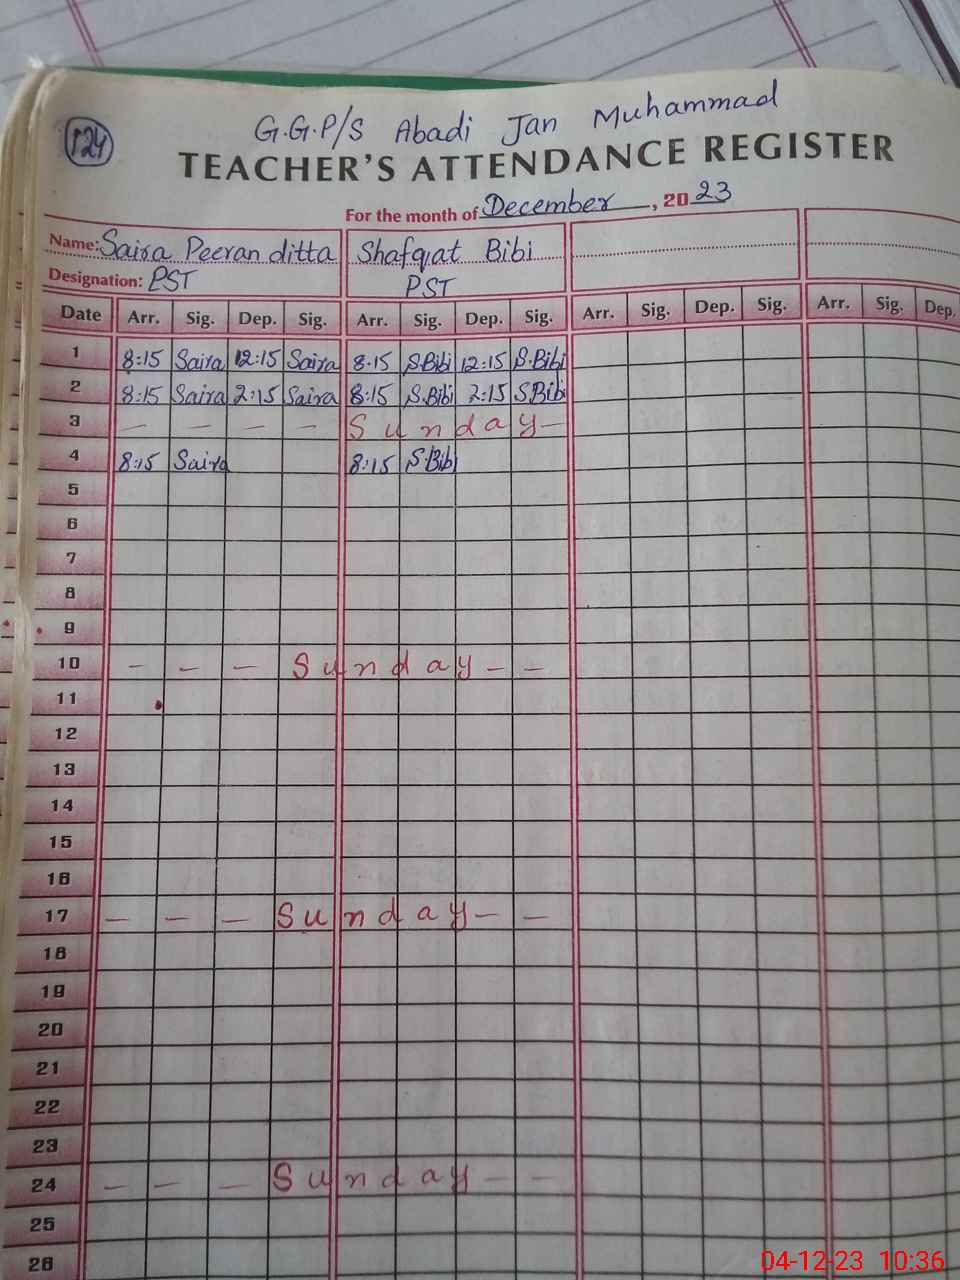 124
G.G.P/S Abadi Jan Muhammad
TEACHER'S ATTENDANCE REGISTER
For the month of December, 2023
Name: Saira Peeran ditta Shafqat Bibi
Designation: PST PST
Date Arr. Sig. Dep. Sig. Arr. Sig. Dep. Sig. Arr. Sig. Dep. Sig. Arr. Sig. Dep.
1 8:15 Saira 12:15 Saira 8.15 S.Bibi 12:15 S.Bibi
2 8:15 Saira 2:15 Saira 8:15 S.Bibi 2:15 SBibi
3 - - - - Sunday -
4 8:15 Saira 8:15 S.Bibi
5
6
7
8
9
10 - - - Sunday - -
11
12
13
14
15
16
17 - - - Sunday - -
18
19
20
21
22
23
24 - - - Sunday - -
25
26
04-12-23 10:36